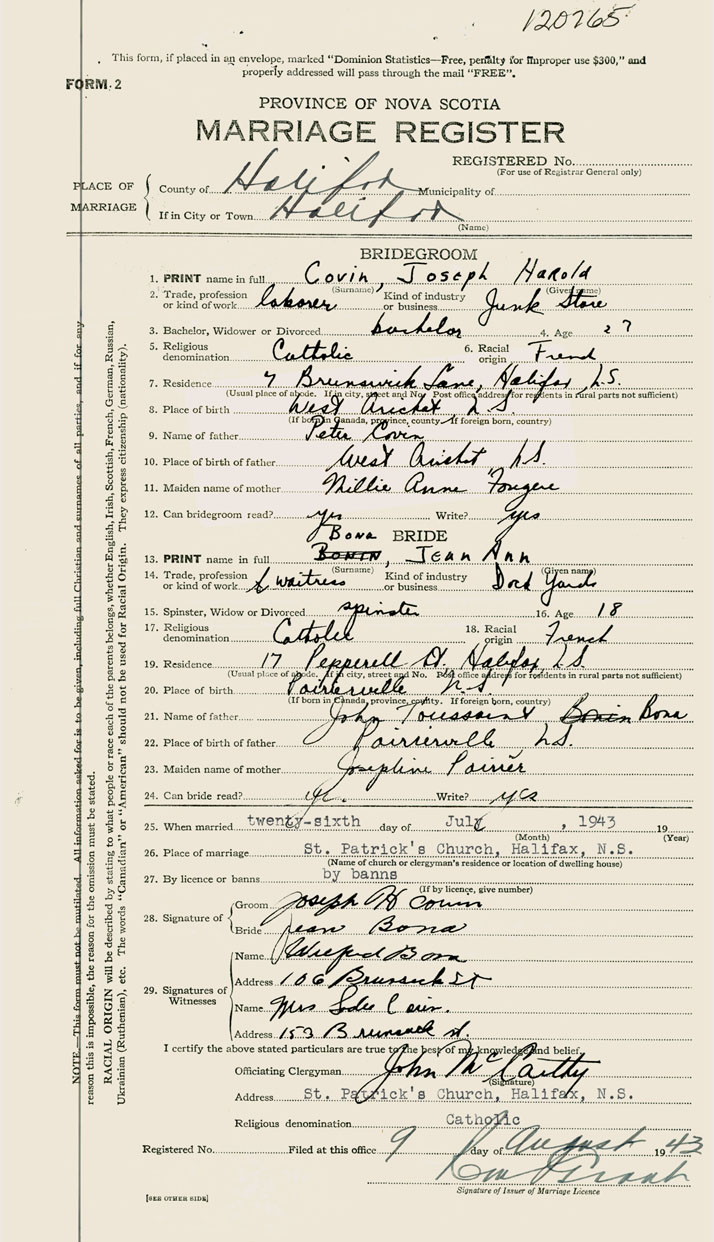 120765
This form, if placed in an envelope, marked "Dominion Statistics—Free, penalty for improper use $300," and
properly addressed will pass through the mail "FREE".
FORM 2
PROVINCE OF NOVA SCOTIA
MARRIAGE REGISTER
REGISTERED No.
(For use of Registrar General only)
PLACE OF MARRIAGE
County of Halifax Municipality of
If in City or Town Halifax
(Name)
BRIDEGROOM
1. PRINT name in full Covin, Joseph Harold
(Surname) (Given name)
2. Trade, profession or kind of work laborer Kind of industry or business Junk Store
3. Bachelor, Widower or Divorced bachelor 4. Age 27
5. Religious denomination Catholic 6. Racial origin French
7. Residence 7 Brunswick Lane, Halifax, N.S.
(Usual place of abode. If in city, street and No. Post office address for residents in rural parts not sufficient)
8. Place of birth West Arichat, N.S.
(If born in Canada, province, county. If foreign born, country)
9. Name of father Peter Covin
10. Place of birth of father West Arichat, N.S.
11. Maiden name of mother Millie Anne Fougere
12. Can bridegroom read? yes Write? yes
BRIDE
Bona
13. PRINT name in full Bonin, Jean Ann
(Surname) (Given name)
14. Trade, profession or kind of work waitress Kind of industry or business Dock Yards
15. Spinster, Widow or Divorced spinster 16. Age 18
17. Religious denomination Catholic 18. Racial origin French
19. Residence 17 Pepperell St. Halifax, N.S.
(Usual place of abode. If in city, street and No. Post office address for residents in rural parts not sufficient)
20. Place of birth Poirierville N.S.
(If born in Canada, province, county. If foreign born, country)
21. Name of father John Toussaint Bonin Bona
22. Place of birth of father Poirierville N.S.
23. Maiden name of mother Josephine Poirier
24. Can bride read? yes. Write? yes
25. When married twenty-sixth day of July, 1943 19
(Month) (Year)
26. Place of marriage St. Patrick's Church, Halifax, N.S.
(Name of church or clergyman's residence or location of dwelling house)
27. By licence or banns by banns
(If by licence, give number)
28. Signature of
Groom Joseph H Covin
Bride Jean Bona
29. Signatures of Witnesses
Name Bona
Address 106 Brunswick St
Name Mrs
Address 153 Brunswick st.
I certify the above stated particulars are true to the best of my knowledge and belief.
Officiating Clergyman John McCarthy
(Signature)
Address St. Patrick's Church, Halifax, N.S.
Religious denomination Catholic
Registered No. Filed at this office 9 day of August 1943
Signature of Issuer of Marriage Licence
[SEE OTHER SIDE]
NOTE.—This form must not be mutilated. All information asked for is to be given, including full Christian and surnames of all parties, and if for any
reason this is impossible, the reason for the omission must be stated.
RACIAL ORIGIN will be described by stating to what people or race each of the parents belongs, whether English, Irish, Scottish, French, German, Russian,
Ukrainian (Ruthenian), etc. The words "Canadian" or "American" should not be used for Racial Origin. They express citizenship (nationality).